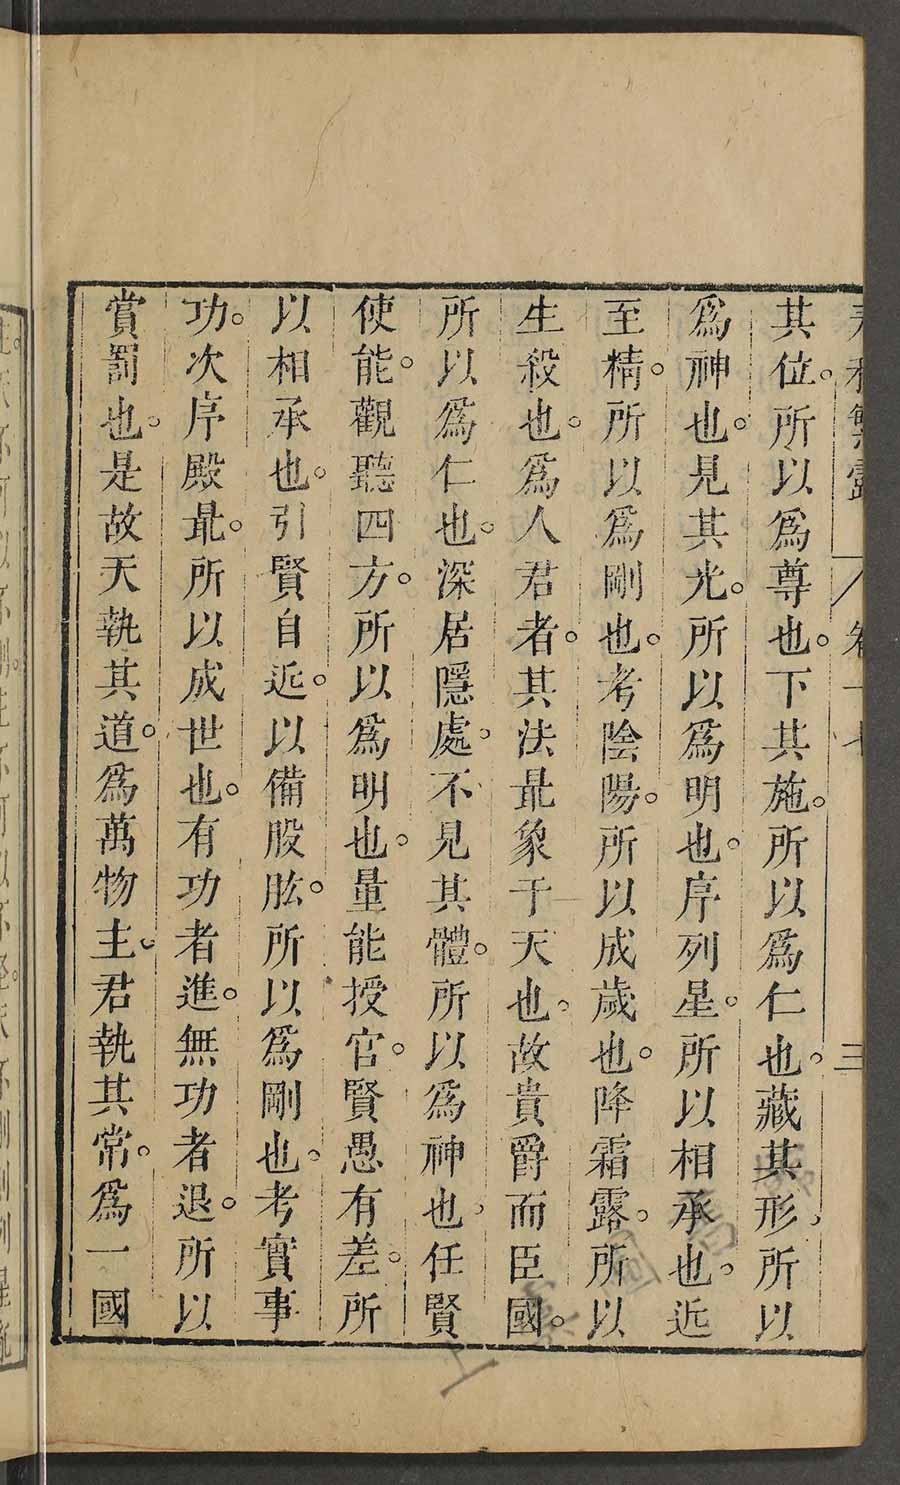 春秋繁露 卷十七 三
其位。所以爲尊也。下其施。所以爲仁也。藏其形。所以
爲神也。見其光。所以爲明也。序列星。所以相承也。近
至精。所以爲剛也。考陰陽。所以成歲也。降霜露。所以
生殺也。爲人君者。其法最象于天也。故貴爵而臣國。
所以爲仁也。深居隱處。不見其體。所以爲神也。任賢
使能。觀聽四方。所以爲明也。量能授官。賢愚有差。所
以相承也。引賢自近。以備股肱。所以爲剛也。考實事
功。次序殿最。所以成世也。有功者進。無功者退。所以
賞罰也。是故天執其道。爲萬物主。君執其常。爲一國